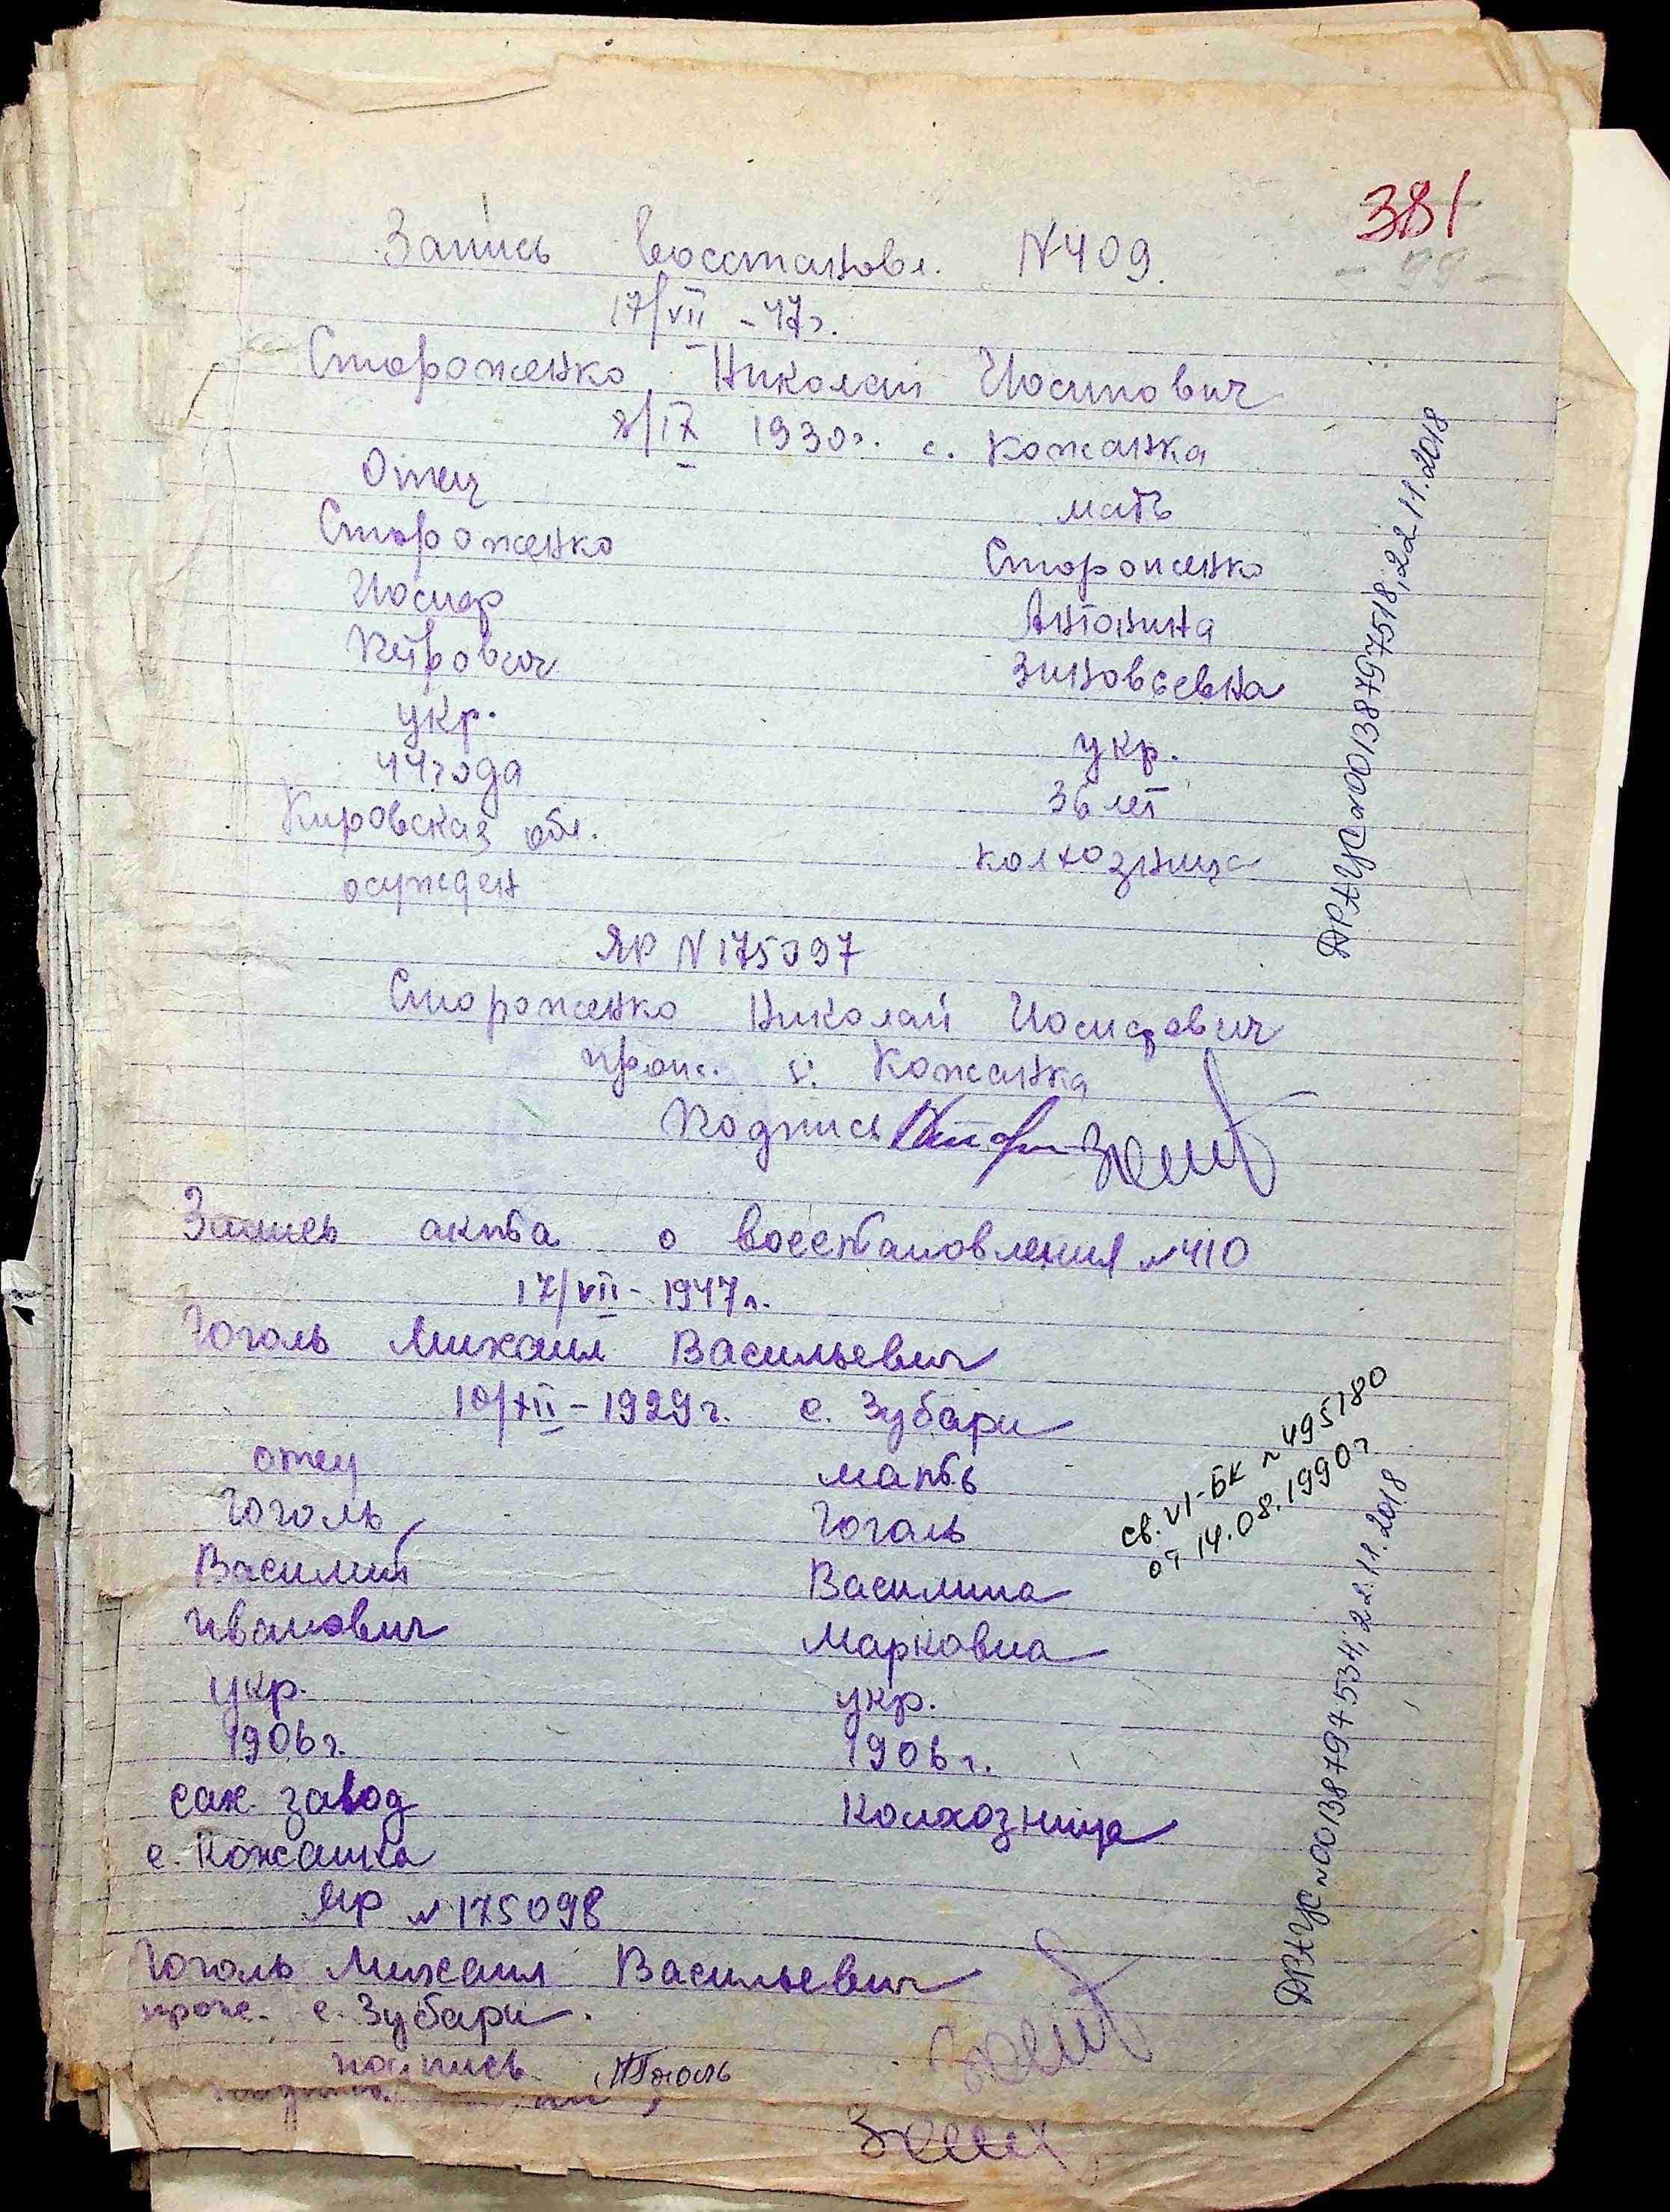 381
- 99 -
Запись восстановл. N 409.
17/VII - 47г.
Стороженко Николай Иосипович
8/IX 1930г. с. Кожанка
Отец мать
Стороженко Стороженко
Иосиф Антонина
Петрович Зиновьевна
укр. укр.
44 года 36 лет
Кировская обл. колхозница
осужден
ЯР N 175097
Стороженко Николай Иосифович
прож. с. Кожанка
Подпись
ДРАЦС №00138797518, 22.11.2018
Запись акта о восстановления №410
17/VII - 1947г.
Гоголь Михаил Васильевич
10/XII - 1929г. с. Зубари
отец мать
Гоголь Гоголь
Василий Василина
Иванович Марковна
укр. укр.
1906г. 1906г.
сах. завод колхозница
с. Кожанка
ЯР №175098
Гоголь Михаил Васильевич
прож. с. Зубари.
подпись МГоголь
св. VI-БК №495180
от 14.08.1990г
ДРАЦС №00138797534, 22.11.2018